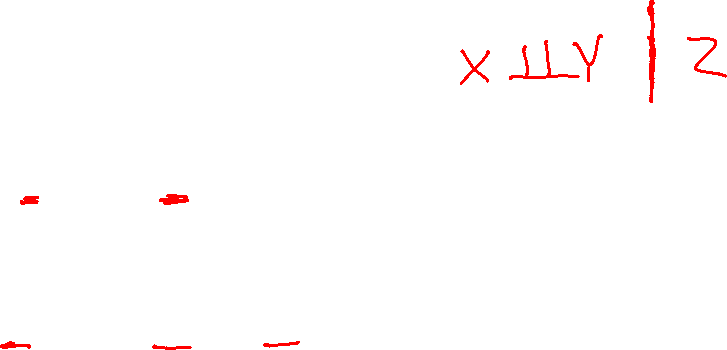 X ⫫ Y | Z